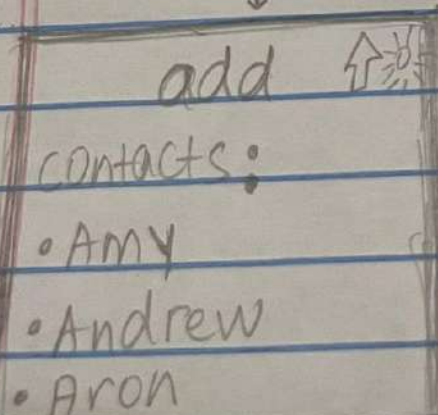 add
contacts:
• Amy
• Andrew
• Aron